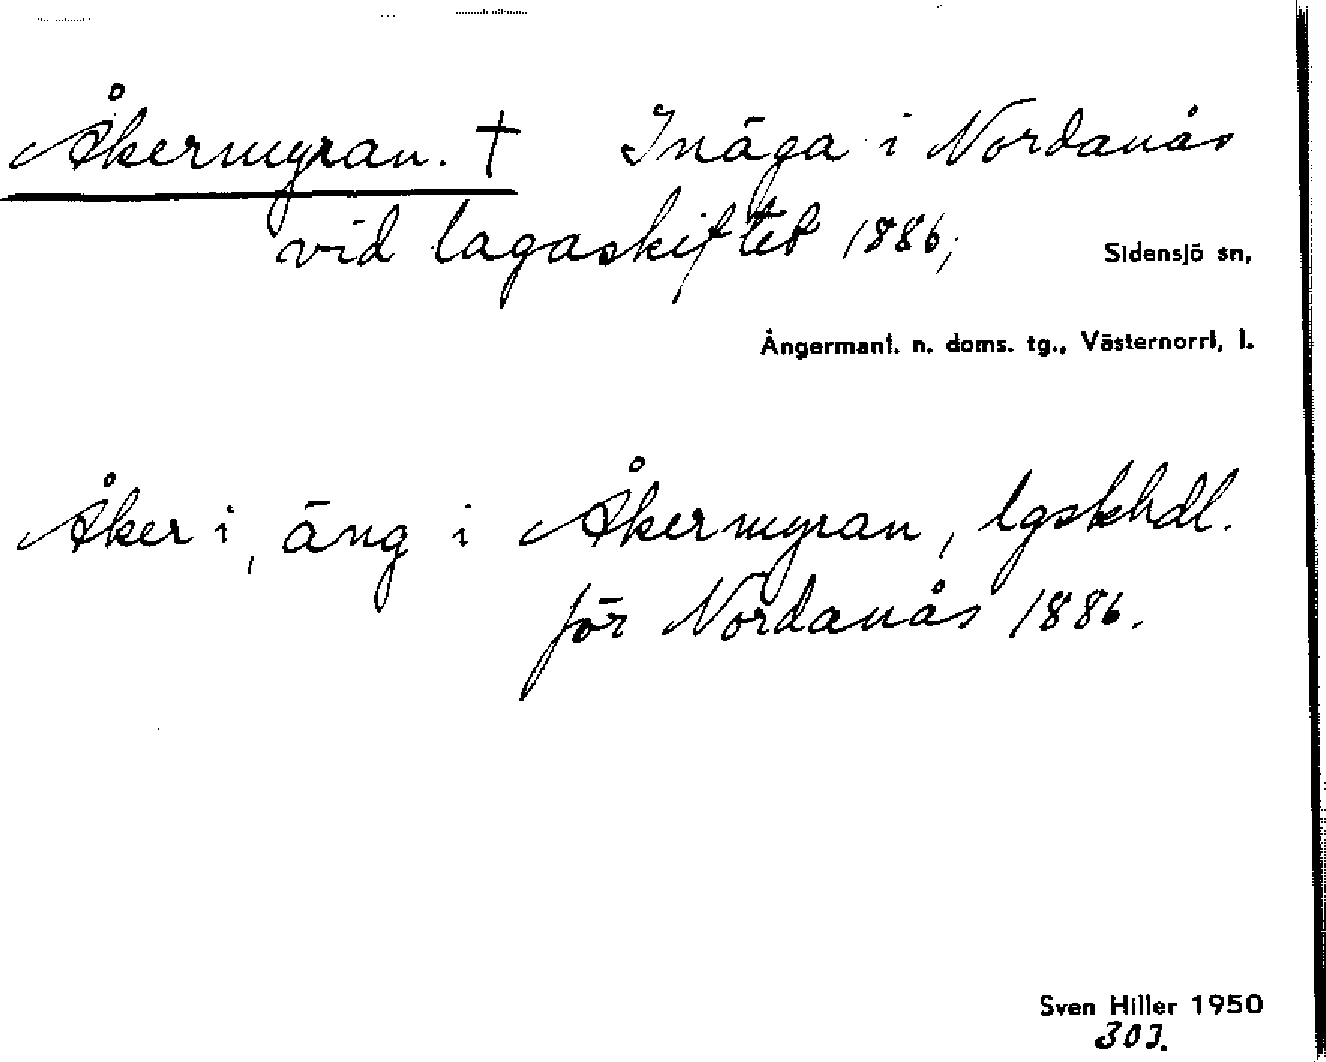 Åkermyran. † Inäga i Nordanås
vid lagaskiftet 1886;
Sidensjö sn,
Ångermanl. n. doms. tg., Västernorrl, l.
Åker i, äng i Åkermyran, lgskhdl.
för Nordanås 1886.
Sven Hiller 1950
303.